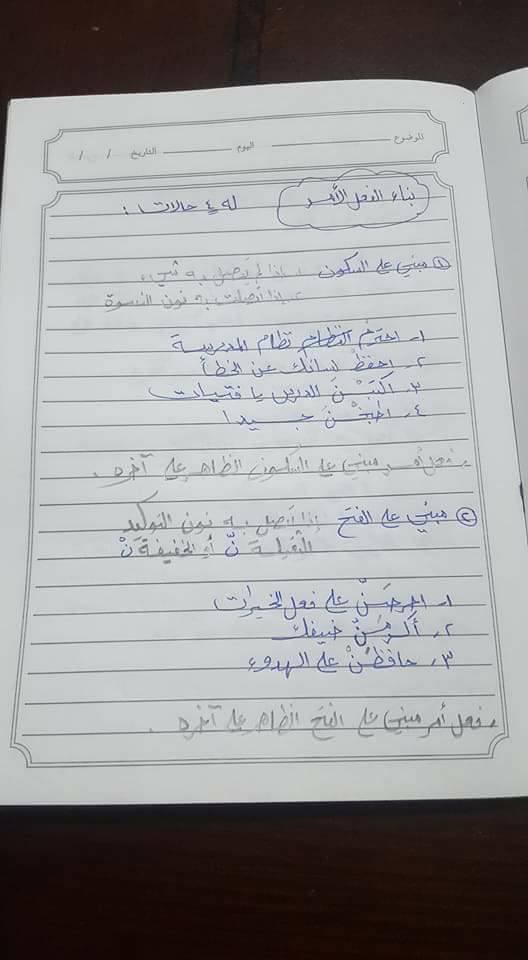 الموضوع اليوم التاريخ / /
بناء الفعل الأمر له ٤ حالات :
① مبني على السكون ١. إذا لم يتصل به شيء
٢. إذا اتصلت به نون النسوة
١. احترم النظام نظام المدرسة
٢. احفظْ لسانك عن الخطأ
٣. اكتبْنَ الدرس يا فتيات
٤. اطبخْنَ جيدا
فعل أمر مبني على السكون الظاهر على آخره.
② مبني على الفتح إذا اتصل به نون التوكيد
الثقيلة نّ أو الخفيفة نْ
١. احرصَنّ على فعل الخيرات
٢. أكرمَنّ ضيفك
٣. حافظَنْ على الهدوء
فعل أمر مبني على الفتح الظاهر على آخره.